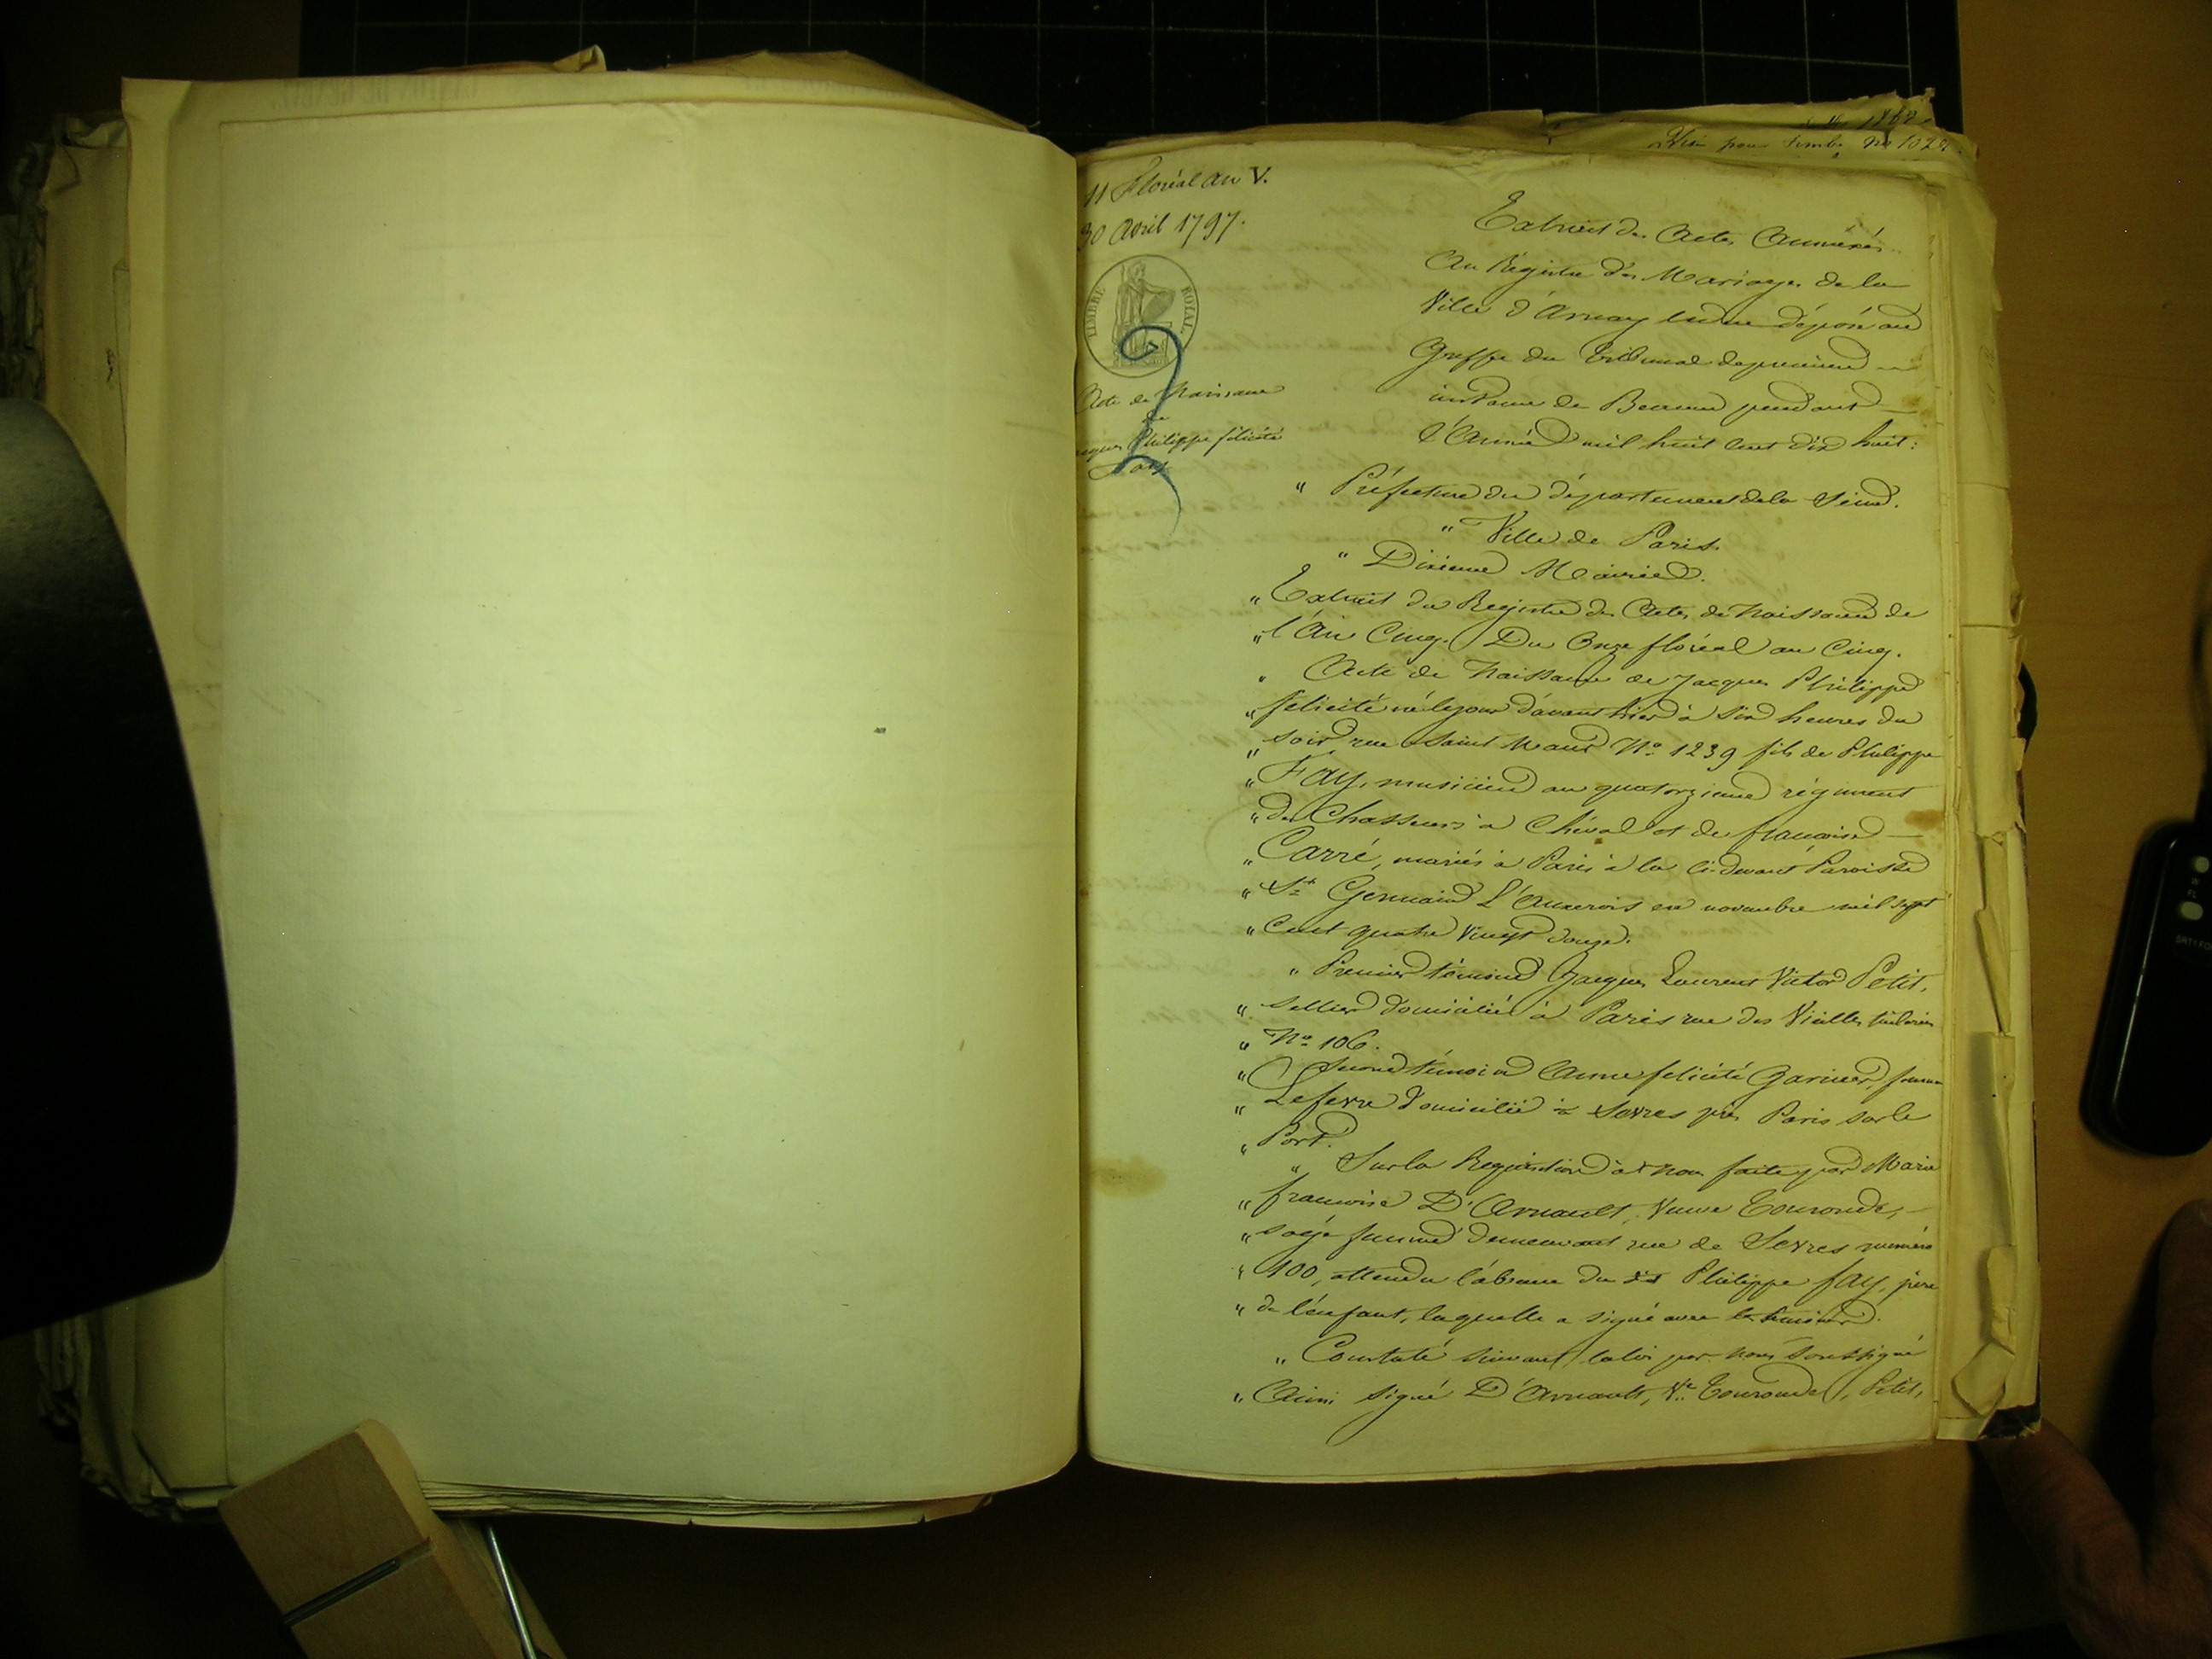 Visa pour timbre no 102
11 floréal an V.
30 avril 1797.
TIMBRE ROYAL
Acte de Naissance
de
Philippe félicité
fay
Extrait des Actes Annexés
Au Régistre des Mariages de la
Ville d'Arnay déposé au
Greffe du tribunal de premiere
instance de Beaune pendant
l'Année mil huit cent dix huit:
" Préfecture du département de la Seine.
" Ville de Paris.
" Dixieme Mairie.
" Extrait du Registre des Actes de Naissance de
" l'An Cinq. Du Onze floréal an Cinq.
" Acte de Naissance de Jacques Philippe
" félicité né le jour d'avant hier à six heures du
" soir, rue Saint Maur No. 1239 fils de Philippe
" FAY, musicien au quatorzieme régiment
" des Chasseurs à Cheval et de françoise
" Carré, mariés à Paris à la ci-devant Paroisse
" St Germain L'Auxerois en novembre mil sept
" Cent quatre Vingt douze.
" Premier témoin Jacques Laurent Victor Petit,
" sellier domicilié à Paris rue des Vieilles tuileries
" No. 106.
" Second témoin Anne félicité Garnier, femme
" Lefevre domicilié à Sevres près Paris sur le
" Port.
" Sur la Requisition à nous faite par Marie
" françoise D'Arnault, Veuve Touronde,
" sage femme demeurant rue de Sevres numéro
" 100, attendu l'absence du dt Philippe fay, père
" de l'enfant, laquelle a signé avec les temoins.
" Constaté suivant la loi par nous soussigné
" Ainsi signé D'Arnault, Ve. Touronde, Petit,